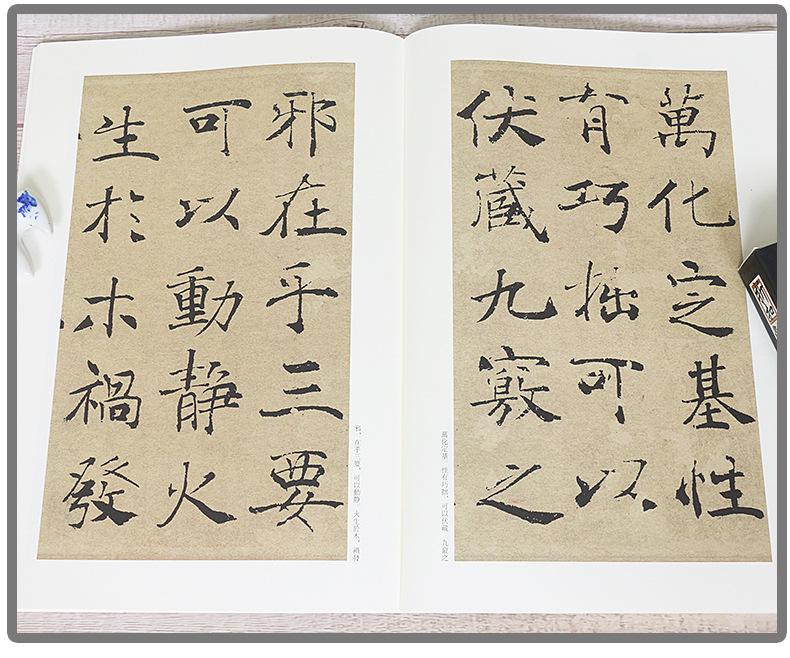 萬化定基性
有巧拙可以
伏藏九竅之
萬化定基 性有巧拙,可以伏藏 九竅之
邪在乎三要
可以動靜火
生於木禍發
邪,在乎三要,可以動靜 火生於木,禍發